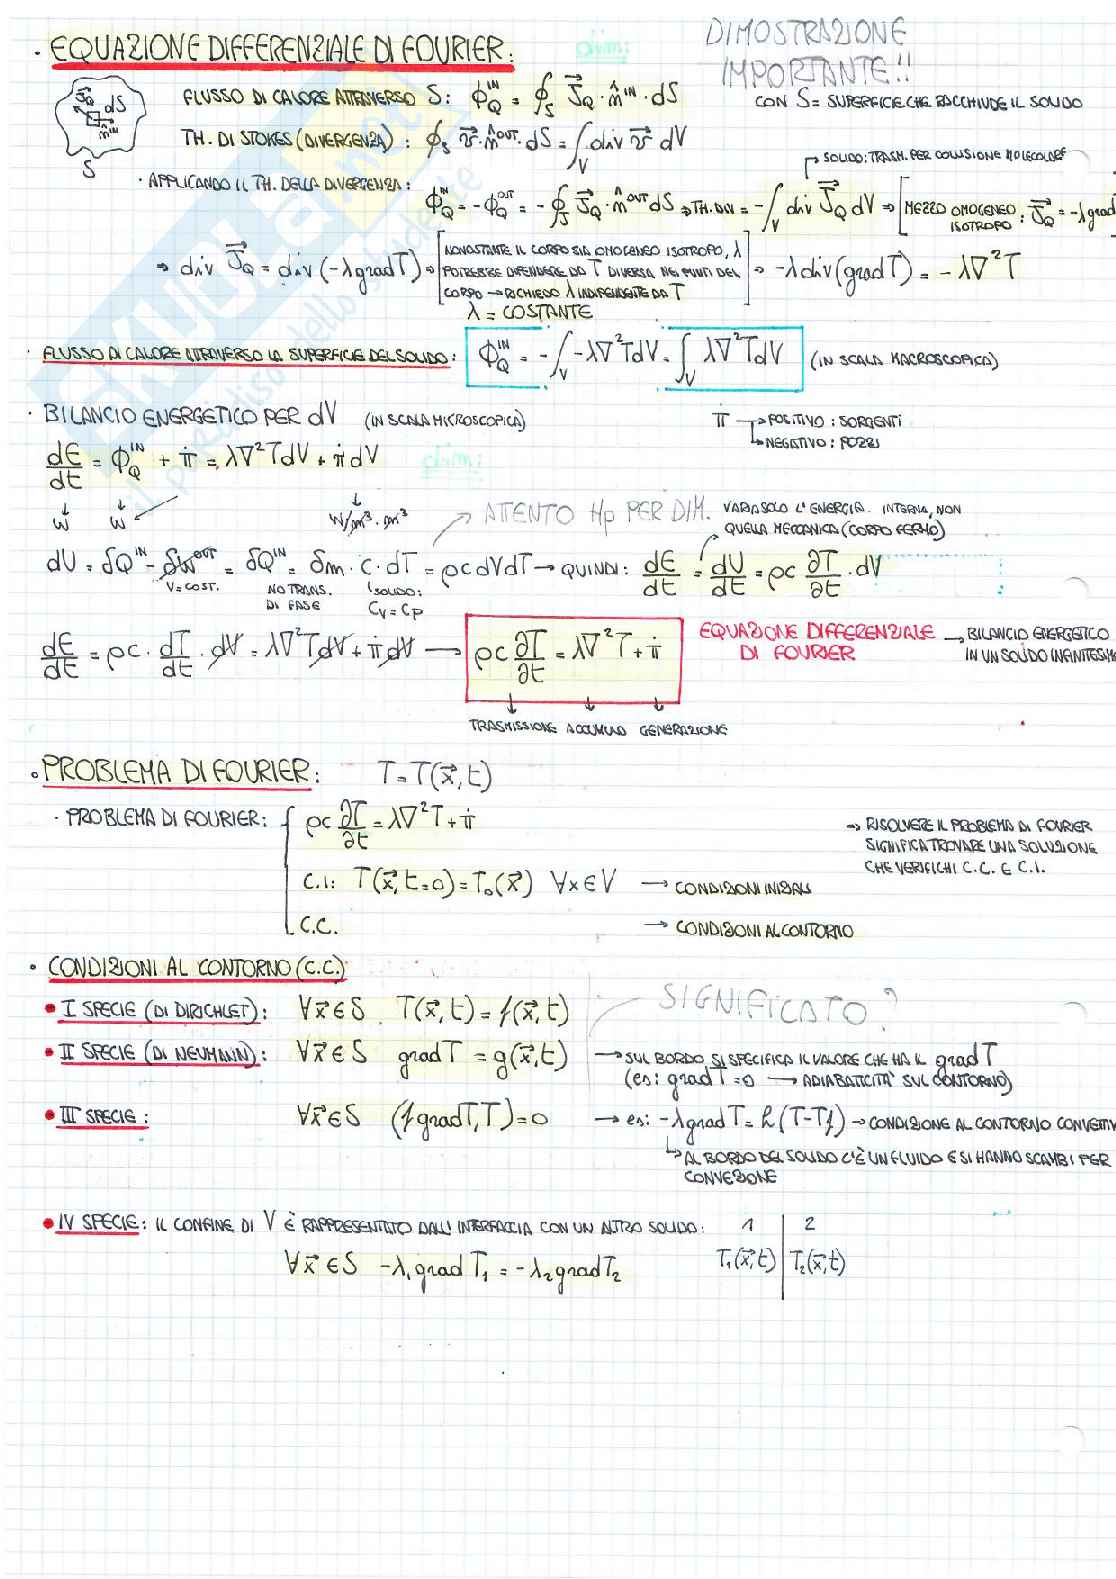 DIMOSTRAZIONE
IMPORTANTE!!
· EQUAZIONE DIFFERENZIALE DI FOURIER:
dim:
J_Q dS n̂^IN
S
FLUSSO DI CALORE ATTRAVERSO S: ϕ_Q^IN = ∮_S J⃗_Q · n̂^IN · dS CON S = SUPERFICIE CHE RACCHIUDE IL SOLIDO
TH. DI STOKES (DIVERGENZA): ∮_S v⃗ · n̂^OUT · dS = ∫_V div v⃗ dV
→ SOLIDO: TRASM. PER COLLISIONE MOLECOLARE
· APPLICANDO IL TH. DELLA DIVERGENZA: ϕ_Q^IN = -ϕ_Q^OUT = -∮_S J⃗_Q · n̂^OUT dS → TH. DIV = -∫_V div J⃗_Q dV ⇒ [MEZZO OMOGENEO ISOTROPO: J⃗_Q = -λgrad
⇒ div J⃗_Q = div (-λ grad T) ⇒ [NONOSTANTE IL CORPO SIA OMOGENEO ISOTROPO, λ
POTREBBE DIPENDERE DA T DIVERSA NEI PUNTI DEL
CORPO → RICHIEDO λ INDIPENDENTE DA T] ⇒ -λ div (grad T) = -λ∇²T
λ = COSTANTE
· FLUSSO DI CALORE ATTRAVERSO LA SUPERFICIE DEL SOLIDO: ϕ_Q^IN = -∫_V -λ∇²T dV = ∫_V λ∇²T dV (IN SCALA MACROSCOPICA)
· BILANCIO ENERGETICO PER dV (IN SCALA MICROSCOPICA)
π → POSITIVO: SORGENTI
→ NEGATIVO: POZZI
dE/dt = ϕ_Q^IN + π̇ = λ∇²T dV + π̇ dV
dim:
W W W/m³ · m³
ATTENTO Hp PER DIM.
VARIA SOLO L'ENERGIA INTERNA, NON
QUELLA MECCANICA (CORPO FERMO)
dU = δQ^IN - δW^OUT = δQ^IN = δm · c · dT = ρc dV dT → QUINDI: dE/dt = dU/dt = ρc ∂T/∂t · dV
V = COST. NO TRANS. DI FASE SOLIDO: Cv = Cp
dE/dt = ρc · dT/dt · dV = λ∇²T dV + π̇ dV → ρc ∂T/∂t = λ∇²T + π̇
EQUAZIONE DIFFERENZIALE
DI FOURIER
→ BILANCIO ENERGETICO
IN UN SOLIDO INFINITESIM
TRASMISSIONE ACCUMULO GENERAZIONE
· PROBLEMA DI FOURIER: T = T(x⃗, t)
· PROBLEMA DI FOURIER: { ρc ∂T/∂t = λ∇²T + π̇
→ RISOLVERE IL PROBLEMA DI FOURIER
SIGNIFICA TROVARE UNA SOLUZIONE
CHE VERIFICHI C.C. E C.I.
C.I: T(x⃗, t=0) = T₀(x⃗) ∀x∈V → CONDIZIONI INIZIALI
C.C. → CONDIZIONI AL CONTORNO
· CONDIZIONI AL CONTORNO (C.C.)
SIGNIFICATO?
• I SPECIE (DI DIRICHLET): ∀x⃗∈S T(x⃗, t) = f(x⃗, t)
• II SPECIE (DI NEUMANN): ∀x⃗∈S grad T = g(x⃗, t) → SUL BORDO SI SPECIFICA IL VALORE CHE HA IL grad T
(es: grad T = 0 → ADIABATICITÀ SUL CONTORNO)
• III SPECIE: ∀x⃗∈S (f grad T, T) = 0 → es: -λ grad T = h (T - Tf) → CONDIZIONE AL CONTORNO CONVETTIV
→ AL BORDO DEL SOLIDO C'È UN FLUIDO E SI HANNO SCAMBI PER
CONVEZIONE
• IV SPECIE: IL CONFINE DI V È RAPPRESENTATO DALL'INTERFACCIA CON UN ALTRO SOLIDO: 1 | 2
∀x⃗∈S -λ₁ grad T₁ = -λ₂ grad T₂ T₁(x⃗,t) | T₂(x⃗,t)